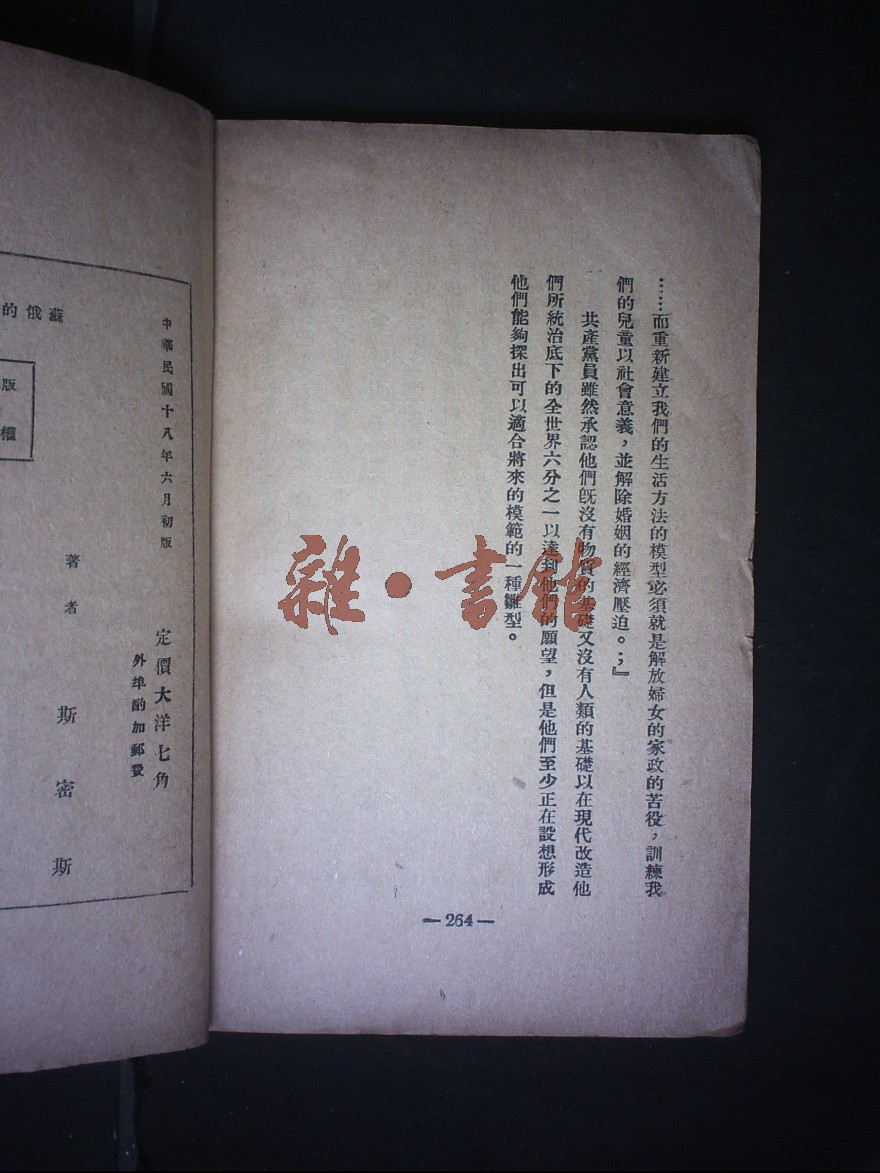 ……而重新建立我們的生活方法的模型必須就是解放婦女的家政的苦役，訓練我
們的兒童以社會意義，並解除婚姻的經濟壓迫。；』
共產黨員雖然承認他們既沒有物質的基礎又沒有人類的基礎以在現代改造他
們所統治底下的全世界六分之一以達到他們的願望，但是他們至少正在設想形成
他們能夠探出可以適合將來的模範的一種雛型。
—264—
雜·書館
中華民國十八年六月初版
定價大洋七角
外埠酌加郵費
著者
斯密斯
蘇俄的
版權